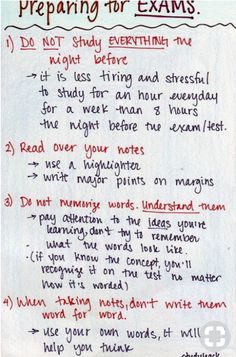 Preparing for EXAMS.
1) DO NOT Study EVERYTHING the
night before
→ it is less tiring and stressful
to study for an hour everyday
for a week than 8 hours
the night before the exam/test.
2) Read over your notes
→ use a highlighter
→ write major points on margins
3) Do not memorize words. Understand them
→ pay attention to the ideas you're
learning, don't try to remember
what the words look like.
(if you know the concept, you'll
recognize it on the test no matter
how it's worded)
4) When taking notes, don't write them
word for word.
→ use your own words, it will
help you think